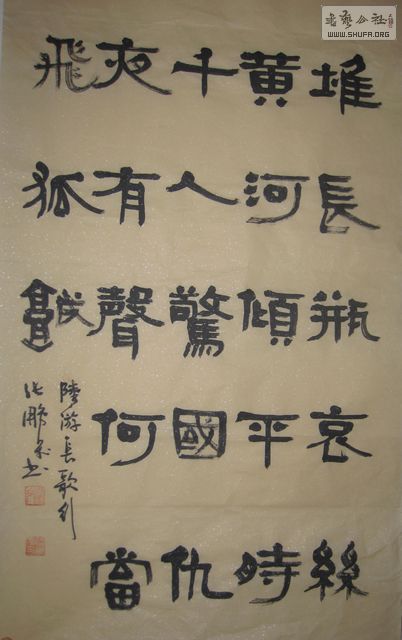 書藝公社
WWW.SHUFA.ORG
堆長瓶哀絲
黄河傾平時
千人驚國仇
夜有聲何當
飛狐𩫨
陸游長歌行
張鵬書